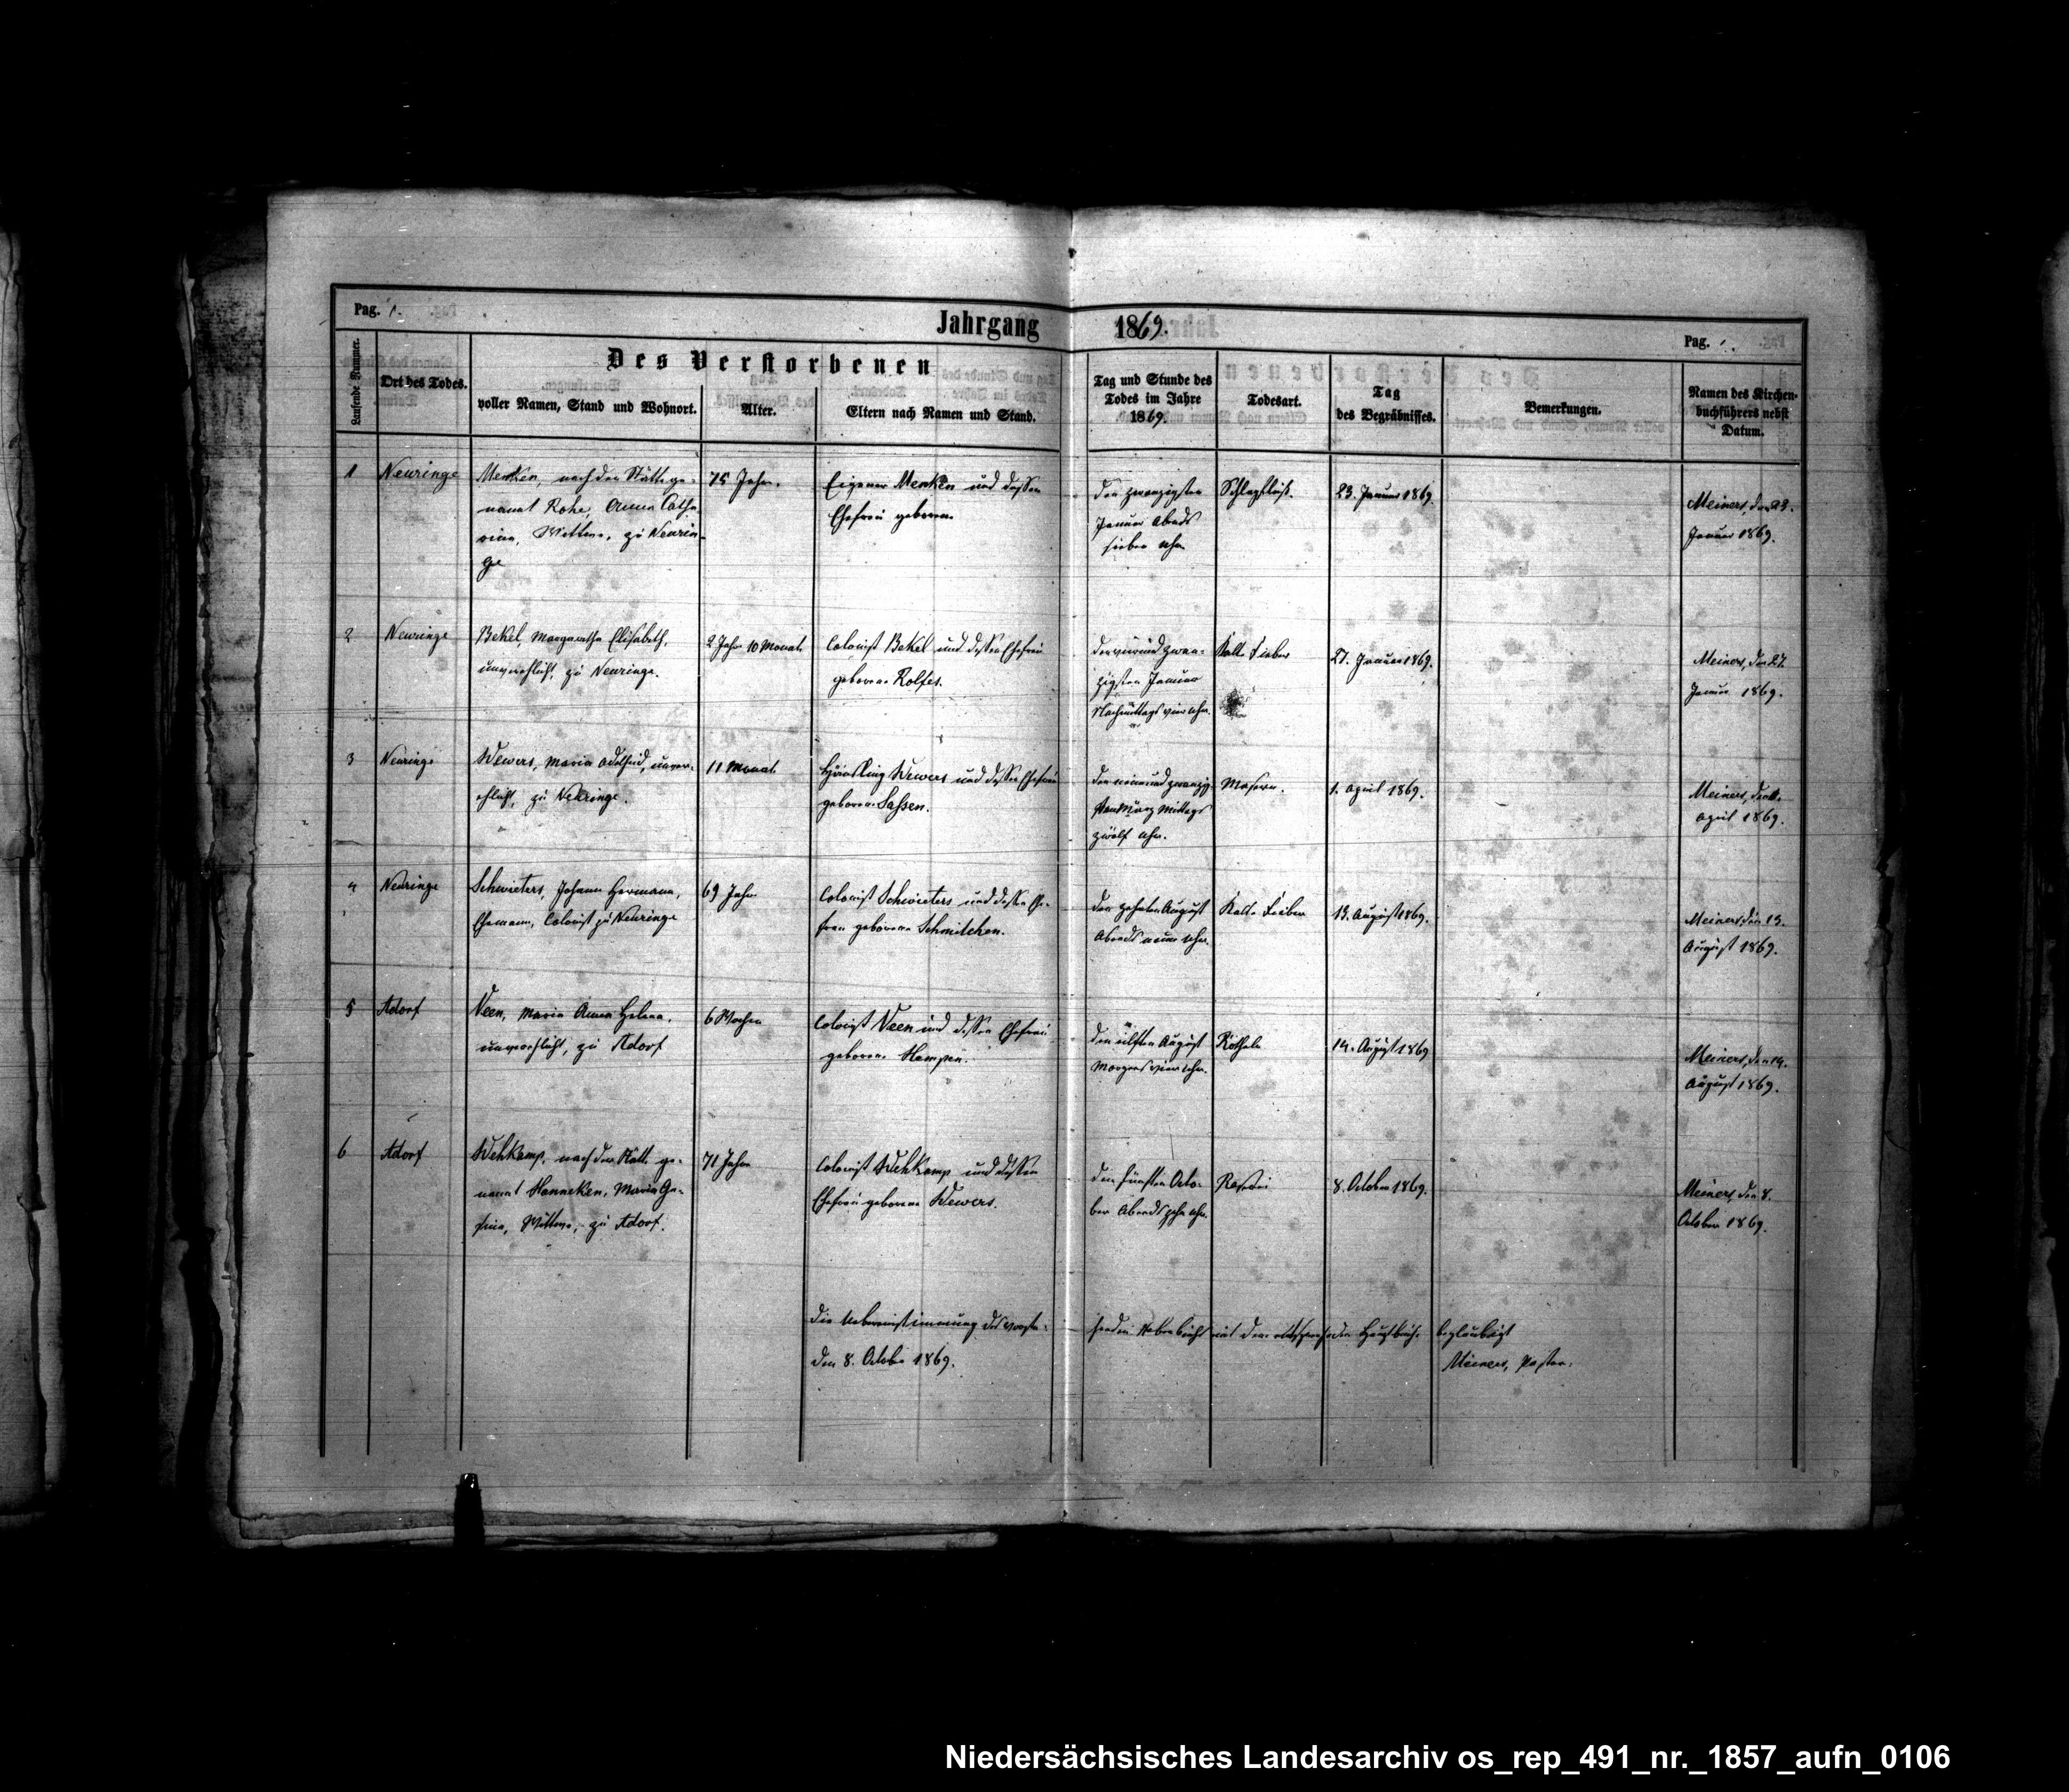 Pag. 1.
Jahrgang 1869.
Pag. 1.
Laufende Nummer.
Ort des Todes.
Des Verstorbenen
voller Namen, Stand und Wohnort.
Alter.
Eltern nach Namen und Stand.
Tag und Stunde des
Todes im Jahre
1869.
Todesart.
Tag
des Begräbnisses.
Bemerkungen.
Namen des Kirchen-
buchführers nebst
Datum.
1
Neuringe
Menken, nach der Stätte ge-
nannt Rohe, Anna Catha-
rina, Wittwe, zu Neurin-
ge
75 Jahre.
Eigener Menken und dessen
Ehefrau geborene
den zwanzigsten
Januar Abends
sieben Uhr
Schlagfluß.
23. Januar 1869.
Meiners, den 23.
Januar 1869.
2
Neuringe
Bekel, Margaretha Elisabeth,
unverehlicht, zu Neuringe.
2 Jahr 10 Monate
Colonist Bekel und dessen Ehefrau
geborene Rolfes.
den vierundzwan-
zigsten Januar
Nachmittags vier Uhr.
Kalte Fieber
27. Januar 1869.
Meiners, den 27
Januar 1869.
3
Neuringe
Wewers, Maria Adelheid, unver-
ehlicht, zu Neuringe.
11 Monate
Häusling Wewers und dessen Ehefrau
geborene Saßen.
den neunundzwanzig-
sten März Mittags
zwölf Uhr.
Masern.
1. April 1869.
Meiners, den 1.
April 1869.
4
Neuringe
Schwieters, Johann Hermann,
Ehemann, Colonist zu Neuringe
69 Jahre
Colonist Schwieters und dessen Ehe-
frau geborene Schmitchen.
den zehnten August
Abends neun Uhr.
Kalte Fieber
13. August 1869.
Meiners, den 13.
August 1869.
5
Adorf
Veen, Maria Anna Helena,
unverehlicht, zu Adorf
6 Wochen
Colonist Veen und dessen Ehefrau
geborene Hempen.
den eilften August
Morgens vier Uhr.
Rötheln
14. August 1869
Meiners, den 14.
August 1869.
6
Adorf
Wehkamp, nach der Stätte ge-
nannt Hanneken, Maria Ge-
sina, Wittwe, zu Adorf.
71 Jahre
Colonist Wehkamp und dessen
Ehefrau geborene Wewers.
den fünften Octo-
ber Abends zehn Uhr.
8. October 1869.
Meiners, den 8.
October 1869.
Die Uebereinstimmung des vorste-
henden Nebenbuchs mit dem entsprechenden Hauptbuche beglaubigt
den 8. October 1869.
Meiners, Pastor.
Niedersächsisches Landesarchiv os_rep_491_nr._1857_aufn_0106